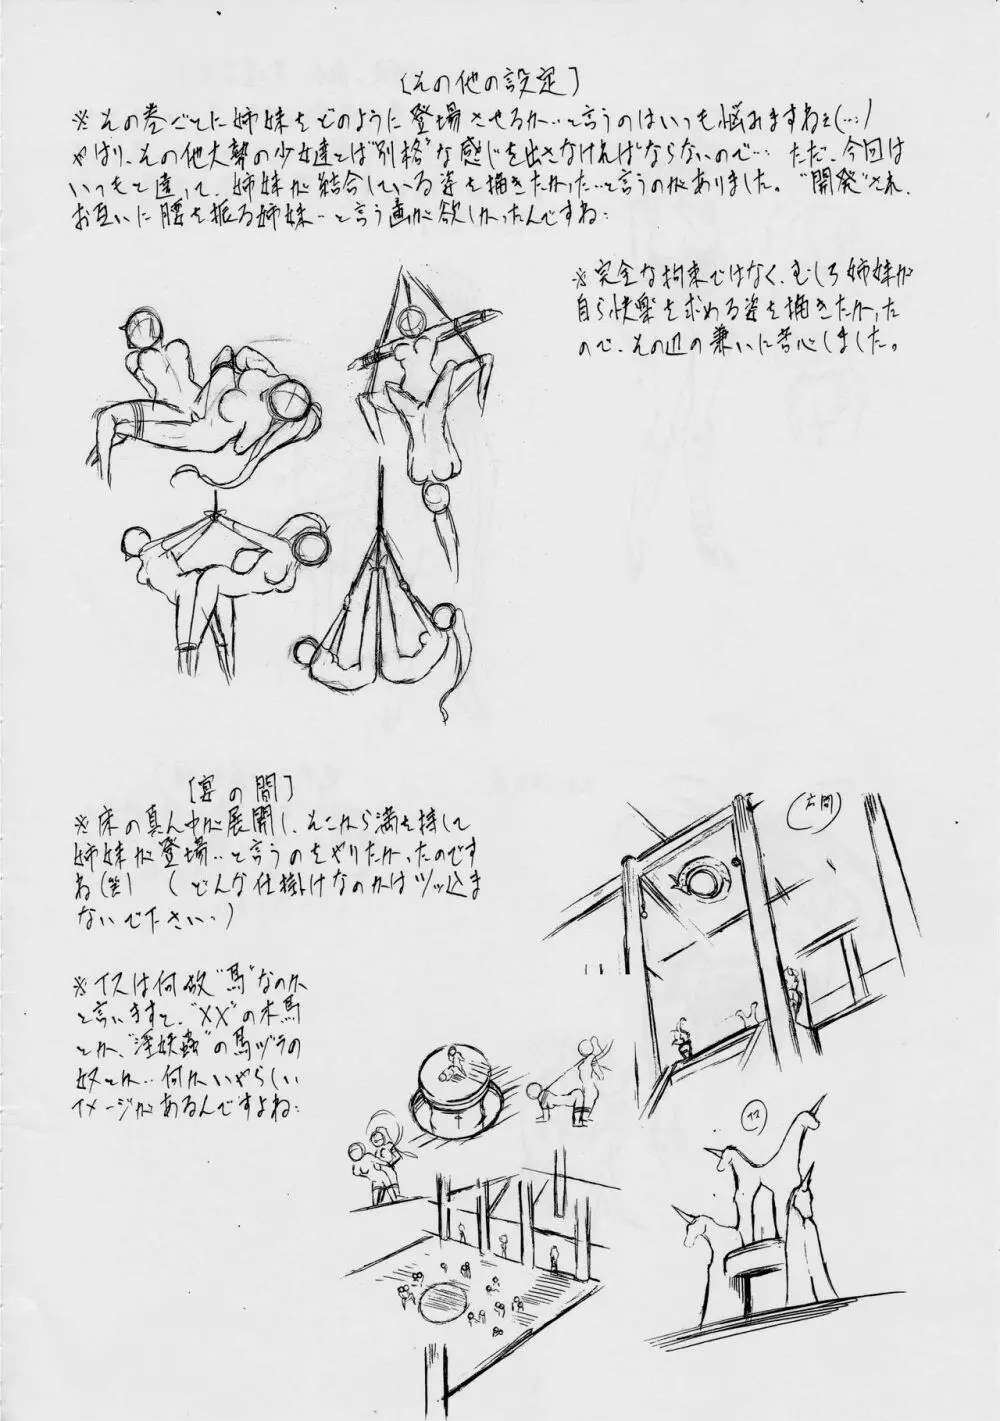 [その他の設定]
※その巻ごとに姉妹をどのように登場させるか…と言うのはいつも悩みますねぇ(…)
やはり、その他大勢の少女達とは"別格"な感じを出さなければならないので… ただ、今回は
いつもと違って、姉妹が結合している姿を描きたかった…と言うのがありました。"開発"され、
お互いに腰を振る姉妹…と言う画が欲しかったんですね…
※完全な拘束ではなく、むしろ姉妹が
自ら快楽を求める姿を描きたかった
ので、その辺の兼いに苦心しました。
[宴の間]
※床の真ん中が展開し、そこから満を持して
姉妹が登場…と言うのをやりたかったのです
ね(笑) (どんな仕掛けなのかはツッ込ま
ないで下さい…)
※イスは何故"馬"なのか
と言いますと、"XX"の木馬
とか、"淫妖蟲"の馬ヅラの
奴とか…何かいやらしい
イメージがあるんですよね…
イス